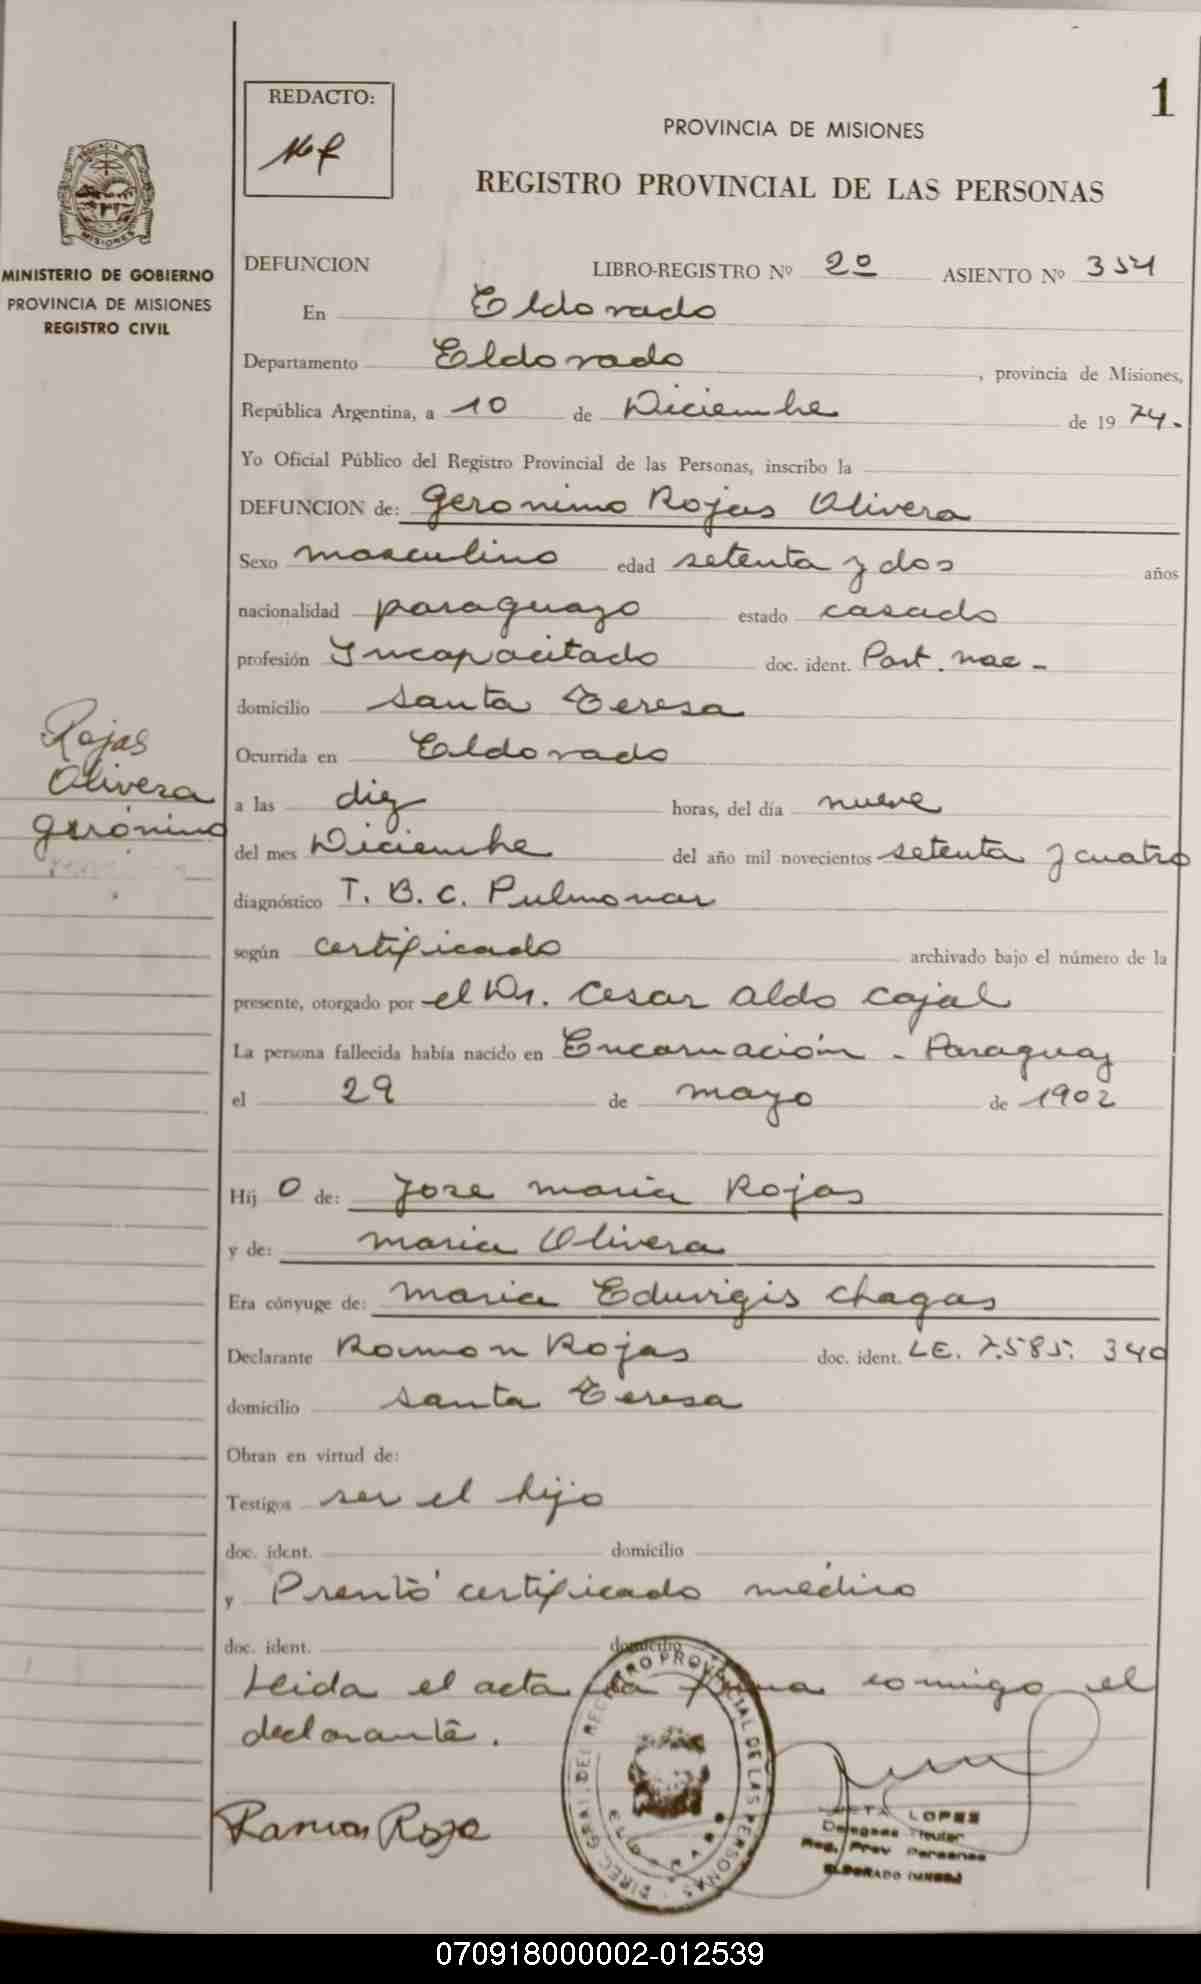 1
REDACTO:
PROVINCIA DE MISIONES
REGISTRO PROVINCIAL DE LAS PERSONAS
MISIONES
MINISTERIO DE GOBIERNO
PROVINCIA DE MISIONES
REGISTRO CIVIL
DEFUNCION LIBRO-REGISTRO Nº 2º ASIENTO Nº 354
En Eldorado
Departamento Eldorado, provincia de Misiones,
República Argentina, a 10 de Diciembre de 1974.
Yo Oficial Público del Registro Provincial de las Personas, inscribo la
DEFUNCION de: Geronimo Rojas Olivera
Sexo masculino edad setenta y dos años
nacionalidad paraguayo estado casado
profesión Incapacitado doc. ident. Part. nac -
domicilio Santa Teresa
Ocurrida en Eldorado
Rojas
Olivera
Gerónimo
a las diez horas, del día nueve
del mes Diciembre del año mil novecientos setenta y cuatro
diagnóstico T. B. C. Pulmonar
según certificado archivado bajo el número de la
presente, otorgado por el Dr. Cesar Aldo Cajal
La persona fallecida había nacido en Encarnación - Paraguay
el 29 de mayo de 1902
Hij o de: Jose Maria Rojas
y de: Maria Olivera
Era cónyuge de: Maria Eduvigis Chagas
Declarante Ramon Rojas doc. ident. LE. 7.585. 340
domicilio Santa Teresa
Obran en virtud de:
Testigos ser el hijo
doc. ident. domicilio
y Prentó certificado médico
doc. ident. domicilio
Leida el acta la firma comigo el
declarante.
DIREC. GRAL. DEL REGISTRO PROVINCIAL DE LAS PERSONAS
Ramon Roja
LOPES
Delegada Titular
Reg. Prov Personas
ELDORADO (MNES)
070918000002-012539